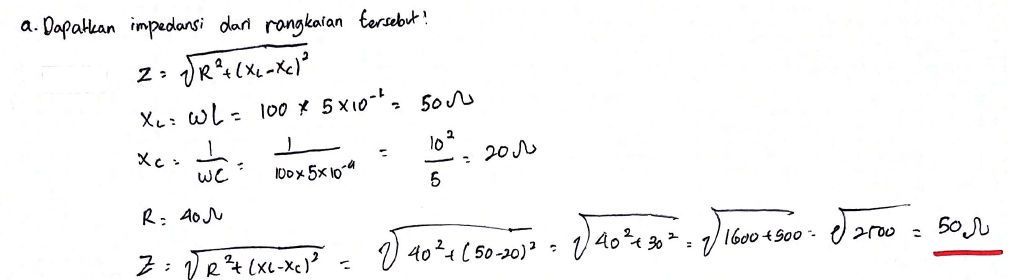 a. Dapatkan impedansi dari rangkaian tersebut!
Z = √R²+(XL-XC)²
XL = ωL = 100 × 5×10⁻¹ = 50Ω
XC = 1/ωC = 1/100×5×10⁻⁴ = 10²/5 = 20Ω
R = 40Ω
Z = √R²+(XL-XC)² = √40²+(50-20)² = √40²+30² = √1600+900 = √2500 = 50Ω